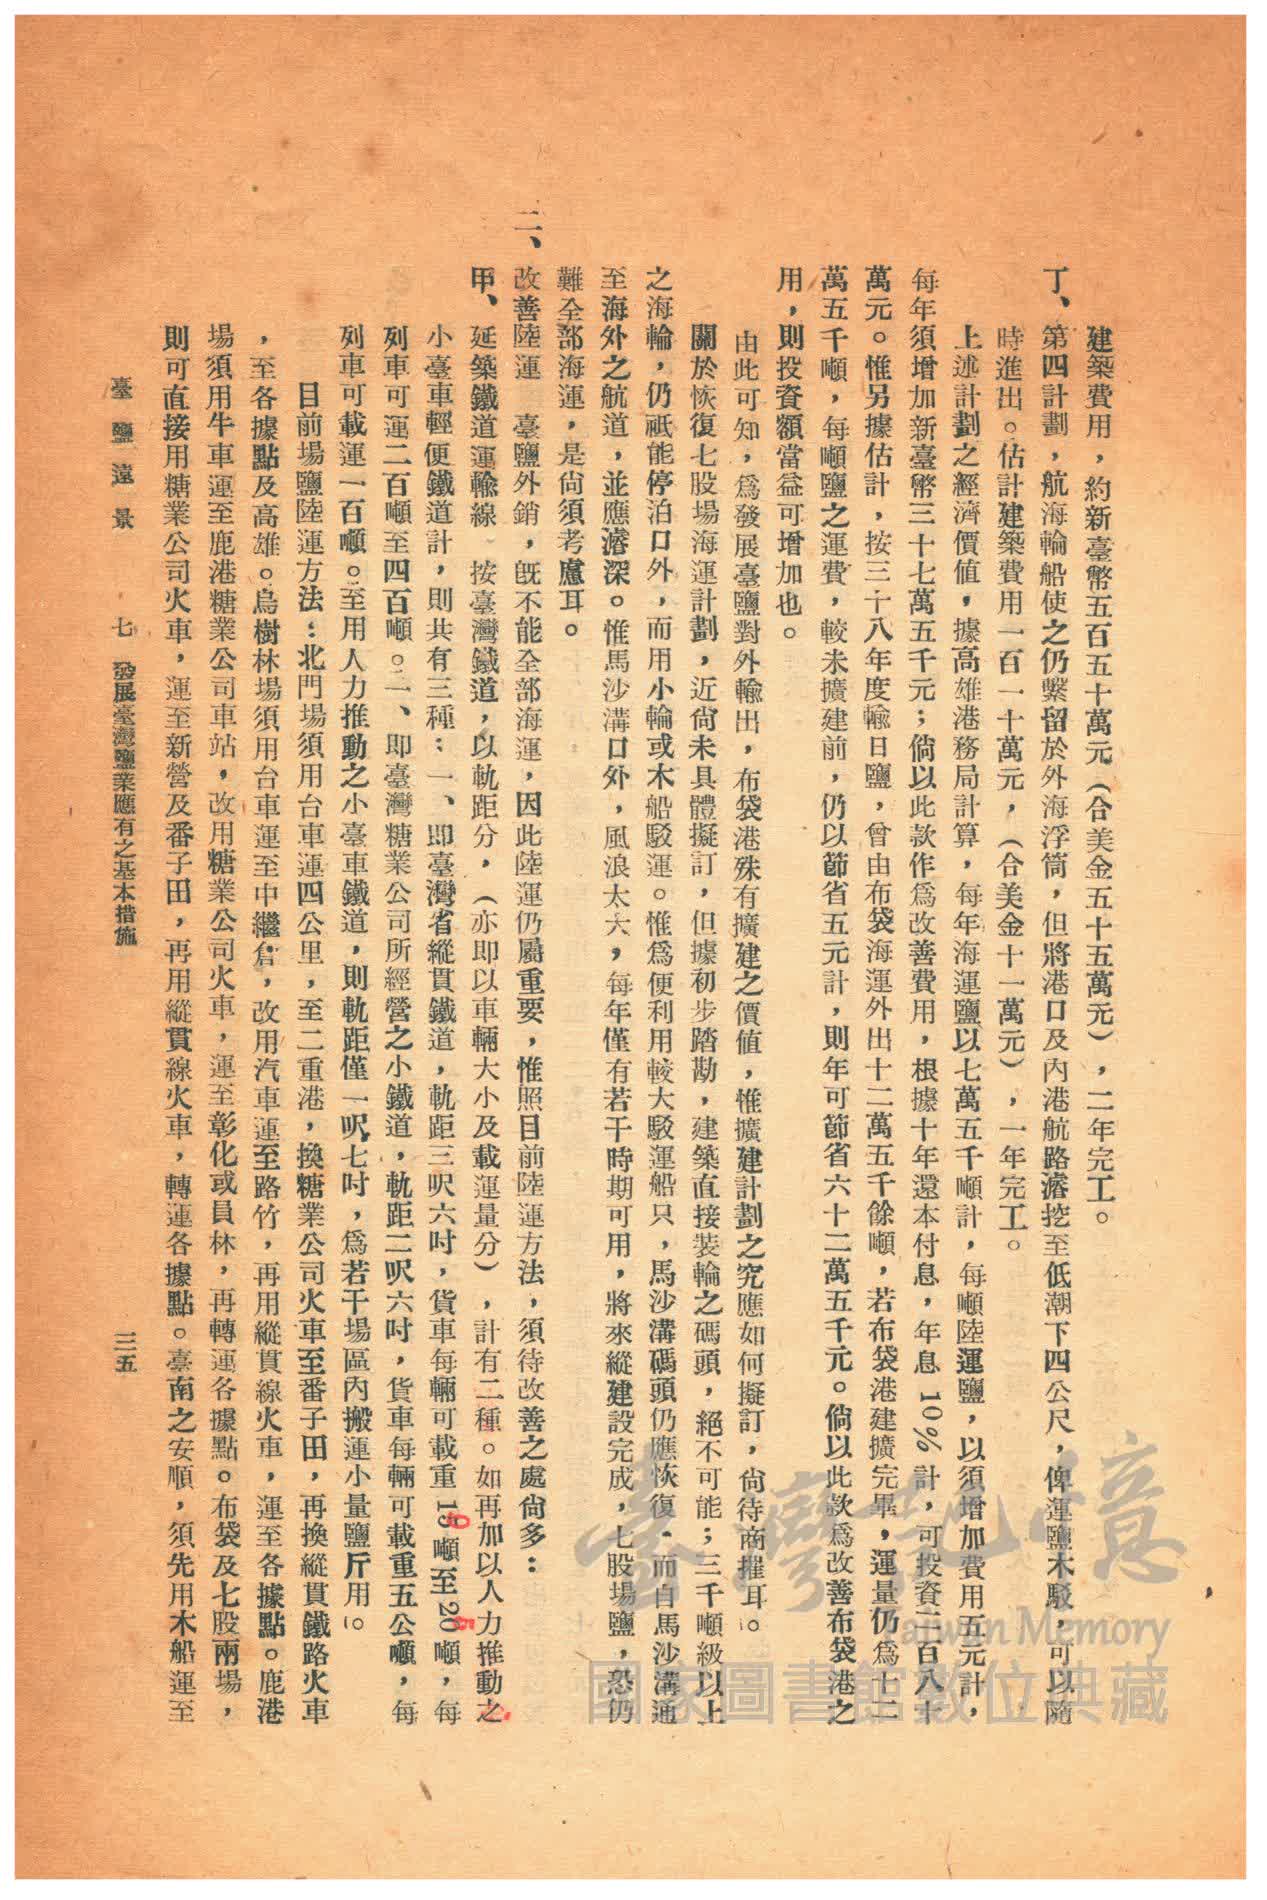 建築費用，約新臺幣五百五十萬元（合美金五十五萬元），二年完工。
丁、第四計劃，航海輪船使之仍繫留於外海浮筒，但將港口及內港航路濬挖至低潮下四公尺，俾運鹽木駁，可以隨
時進出。估計建築費用一百一十萬元，（合美金十一萬元），一年完工。
上述計劃之經濟價值，據高雄港務局計算，每年海運鹽以七萬五千噸計，每噸陸運鹽，以須增加費用五元計，
每年須增加新臺幣三十七萬五千元；倘以此款作爲改善費用，根據十年還本付息，年息10%計，可投資二百八十
萬元。惟另據估計，按三十八年度輸日鹽，曾由布袋海運外出十二萬五千餘噸，若布袋港建擴完畢，運量仍爲十二
萬五千噸，每噸鹽之運費，較未擴建前，仍以節省五元計，則年可節省六十二萬五千元。倘以此款爲改善布袋港之
用，則投資額當益可增加也。
由此可知，爲發展臺鹽對外輸出，布袋港殊有擴建之價値，惟擴建計劃之究應如何擬訂，尙待商搉耳。
關於恢復七股場海運計劃，近尙未具體擬訂，但據初步踏勘，建築直接裝輪之碼頭，絕不可能；三千噸級以上
之海輪，仍祇能停泊口外，而用小輪或木船駁運。惟爲便利用較大駁運船只，馬沙溝碼頭仍應恢復。而自馬沙溝通
至海外之航道，並應濬深。惟馬沙溝口外，風浪太大，每年僅有若干時期可用，將來縱建設完成，七股場鹽，恐仍
難全部海運，是尙須考慮耳。
二、改善陸運　臺鹽外銷，旣不能全部海運，因此陸運仍屬重要，惟照目前陸運方法，須待改善之處尙多：
甲、延築鐵道運輸線　按臺灣鐵道，以軌距分，（亦卽以車輛大小及載運量分），計有二種。如再加以人力推動之
小臺車輕便鐵道計，則共有三種；一、卽臺灣省縱貫鐵道，軌距三呎六吋，貨車每輛可載重15噸至20噸，每
列車可運二百噸至四百噸。二、卽臺灣糖業公司所經營之小鐵道，軌距二呎六吋，貨車每輛可載重五公噸，每
列車可載運一百噸。至用人力推動之小臺車鐵道，則軌距僅一呎七吋，爲若干場區內搬運小量鹽斤用。
目前場鹽陸運方法：北門場須用台車運四公里，至二重港，換糖業公司火車至番子田，再換縱貫鐵路火車
，至各據點及高雄。烏樹林場須用台車運至中繼倉，改用汽車運至路竹，再用縱貫線火車，運至各據點。鹿港
場須用牛車運至鹿港糖業公司車站，改用糖業公司火車，運至彰化或員林，再轉運各據點。布袋及七股兩場，
則可直接用糖業公司火車，運至新營及番子田，再用縱貫線火車，轉運各據點。臺南之安順，須先用木船運至
臺鹽遠景　七　發展臺灣鹽業應有之基本措施　三五
臺灣記憶
Taiwan Memory
國家圖書館數位典藏